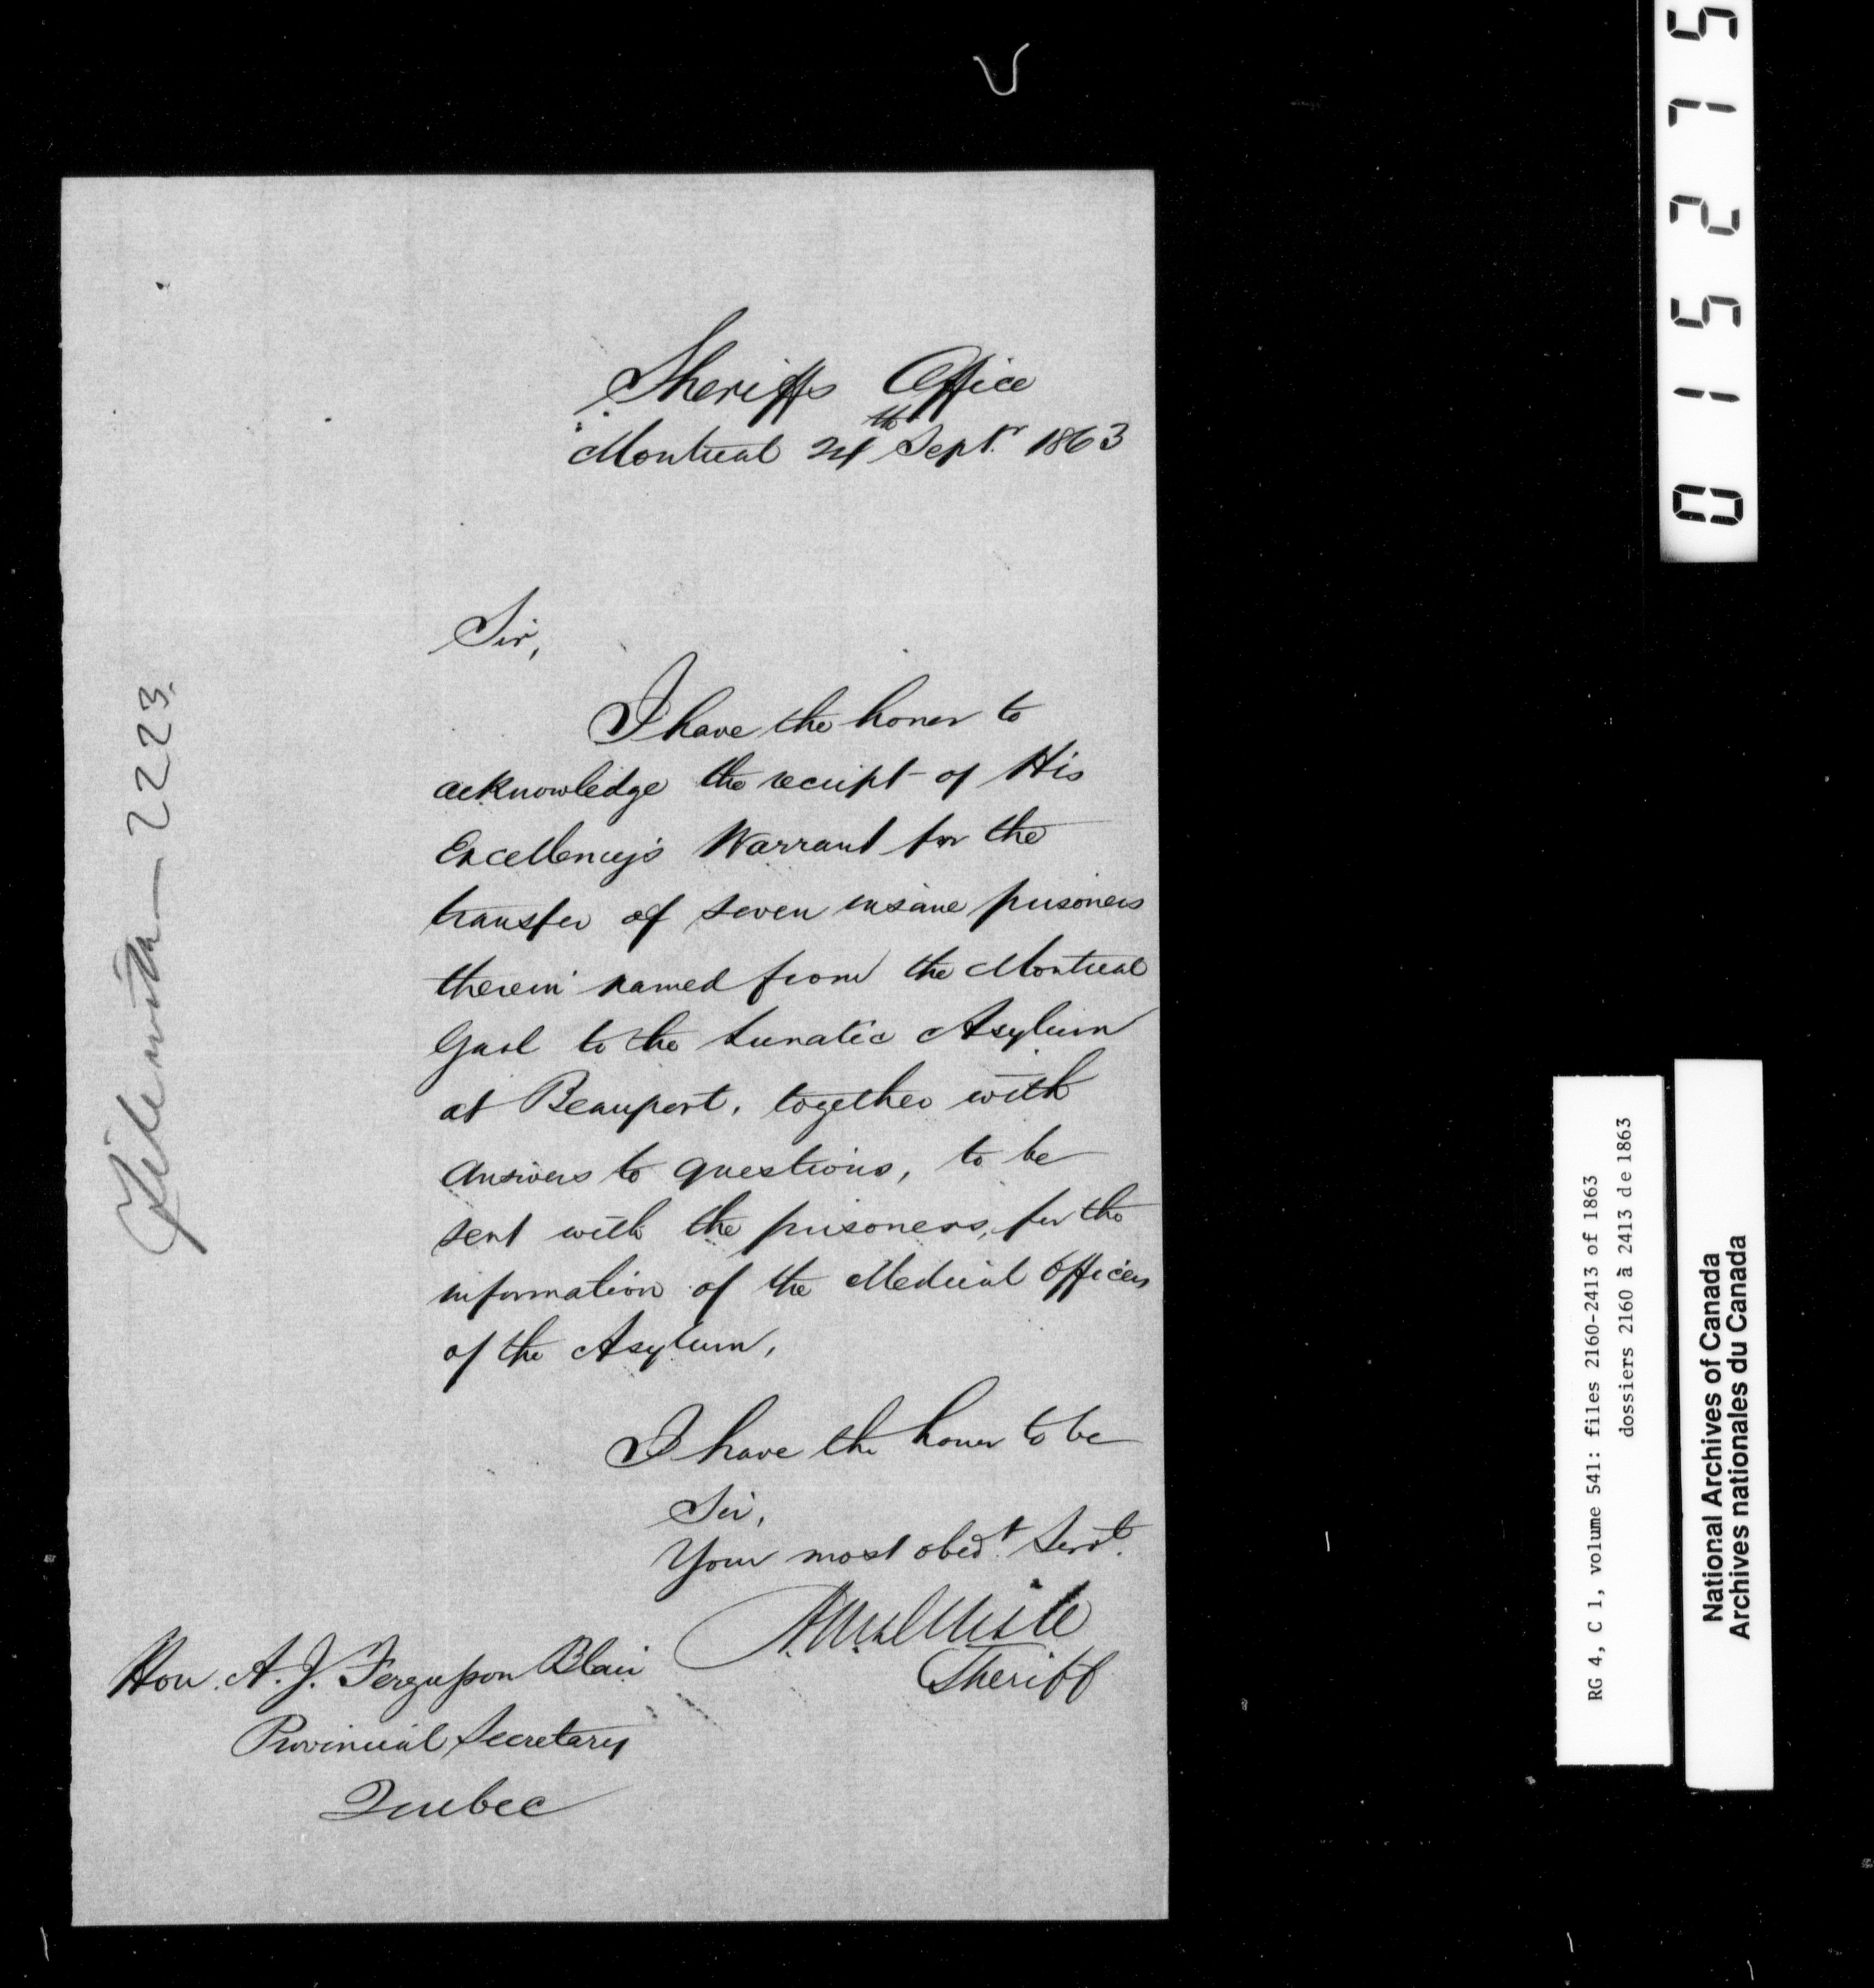 Sheriffs Office
Montreal 24th Septr. 1863
Sir,
I have the honor to
acknowledge the receipt of His
Excellency's Warrant for the
transfer of seven insane prisoners
therein named from the Montreal
Gaol to the Lunatic Asylum
at Beauport, together with
answers to questions, to be
sent with the prisoners, for the
information of the Medical Officers
of the Asylum,
I have the honor to be
Sir,
Your most obedt. Servt.
Sheriff
Hon. A. J. Fergusson Blair
Provincial Secretary
Quebec
File with — 2223.
015275
RG 4, C 1, volume 541: files 2160-2413 of 1863
dossiers 2160 à 2413 de 1863
National Archives of Canada
Archives nationales du Canada